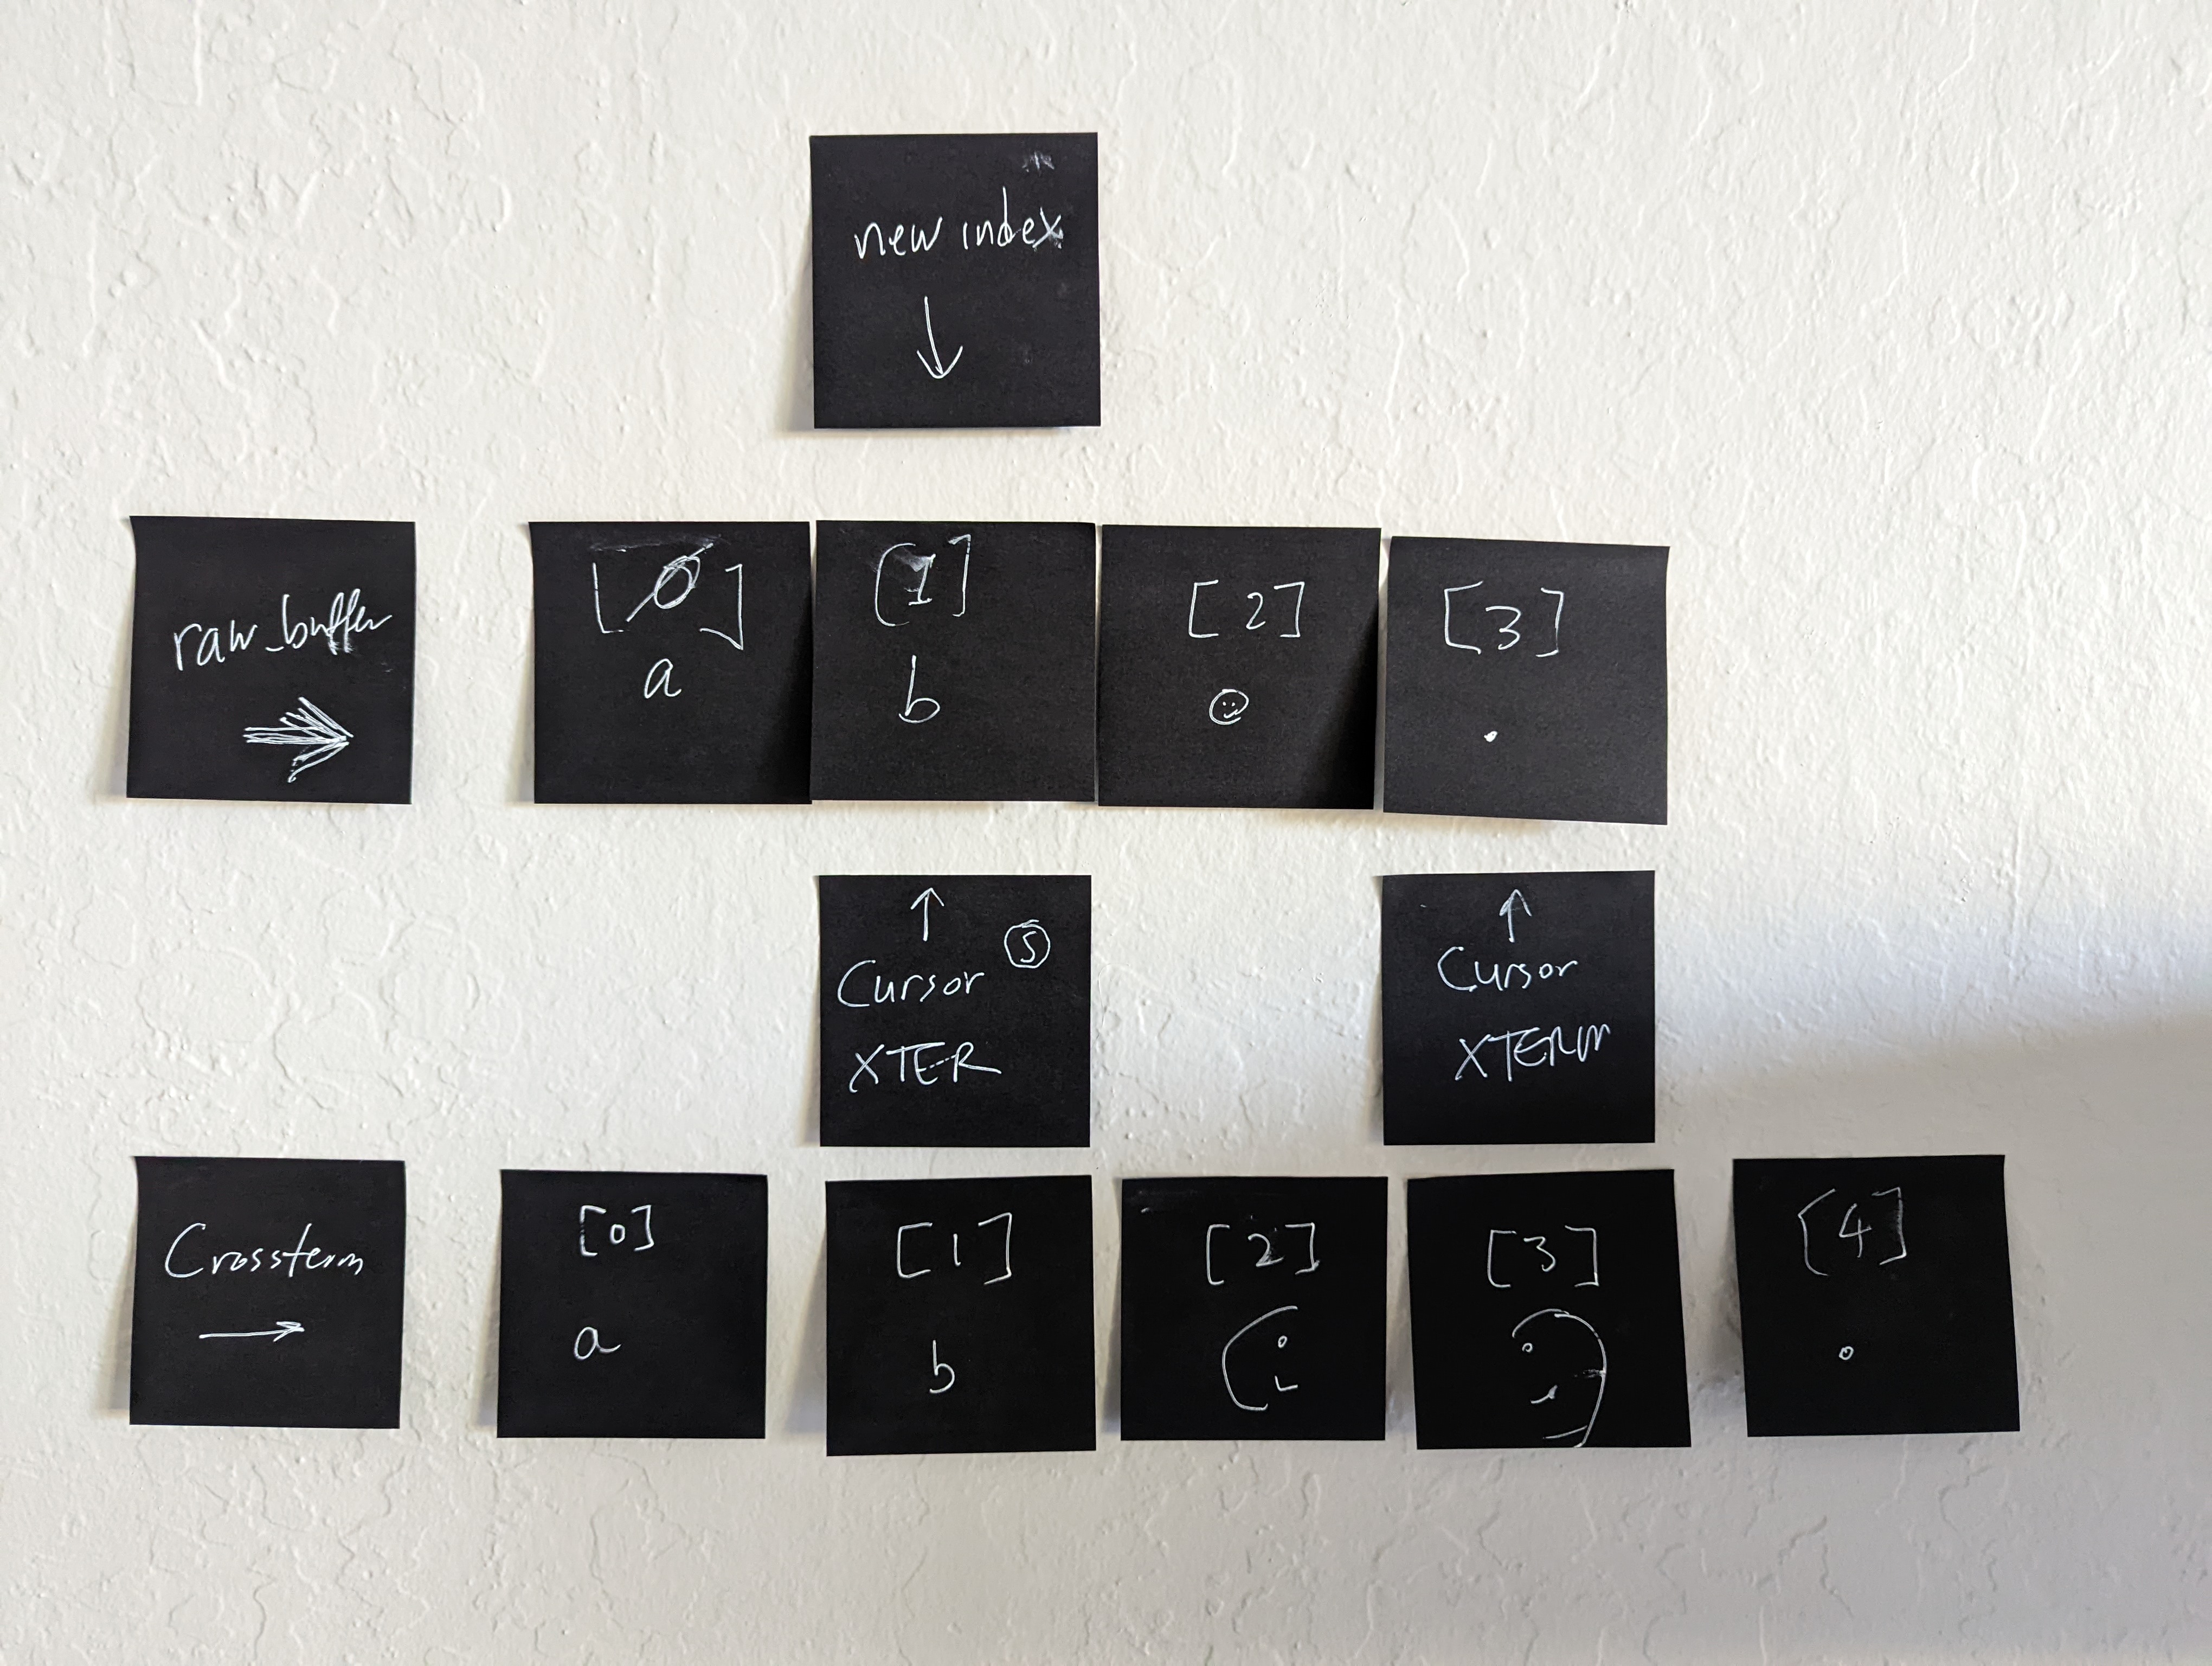 new index
↓
raw_buffer
→
[0]
a
[1]
b
[2]
☺
[3]
.
↑
Cursor Ⓢ
XTER
↑
Cursor
XTERM
Crossterm
→
[0]
a
[1]
b
[2]
[3]
[4]